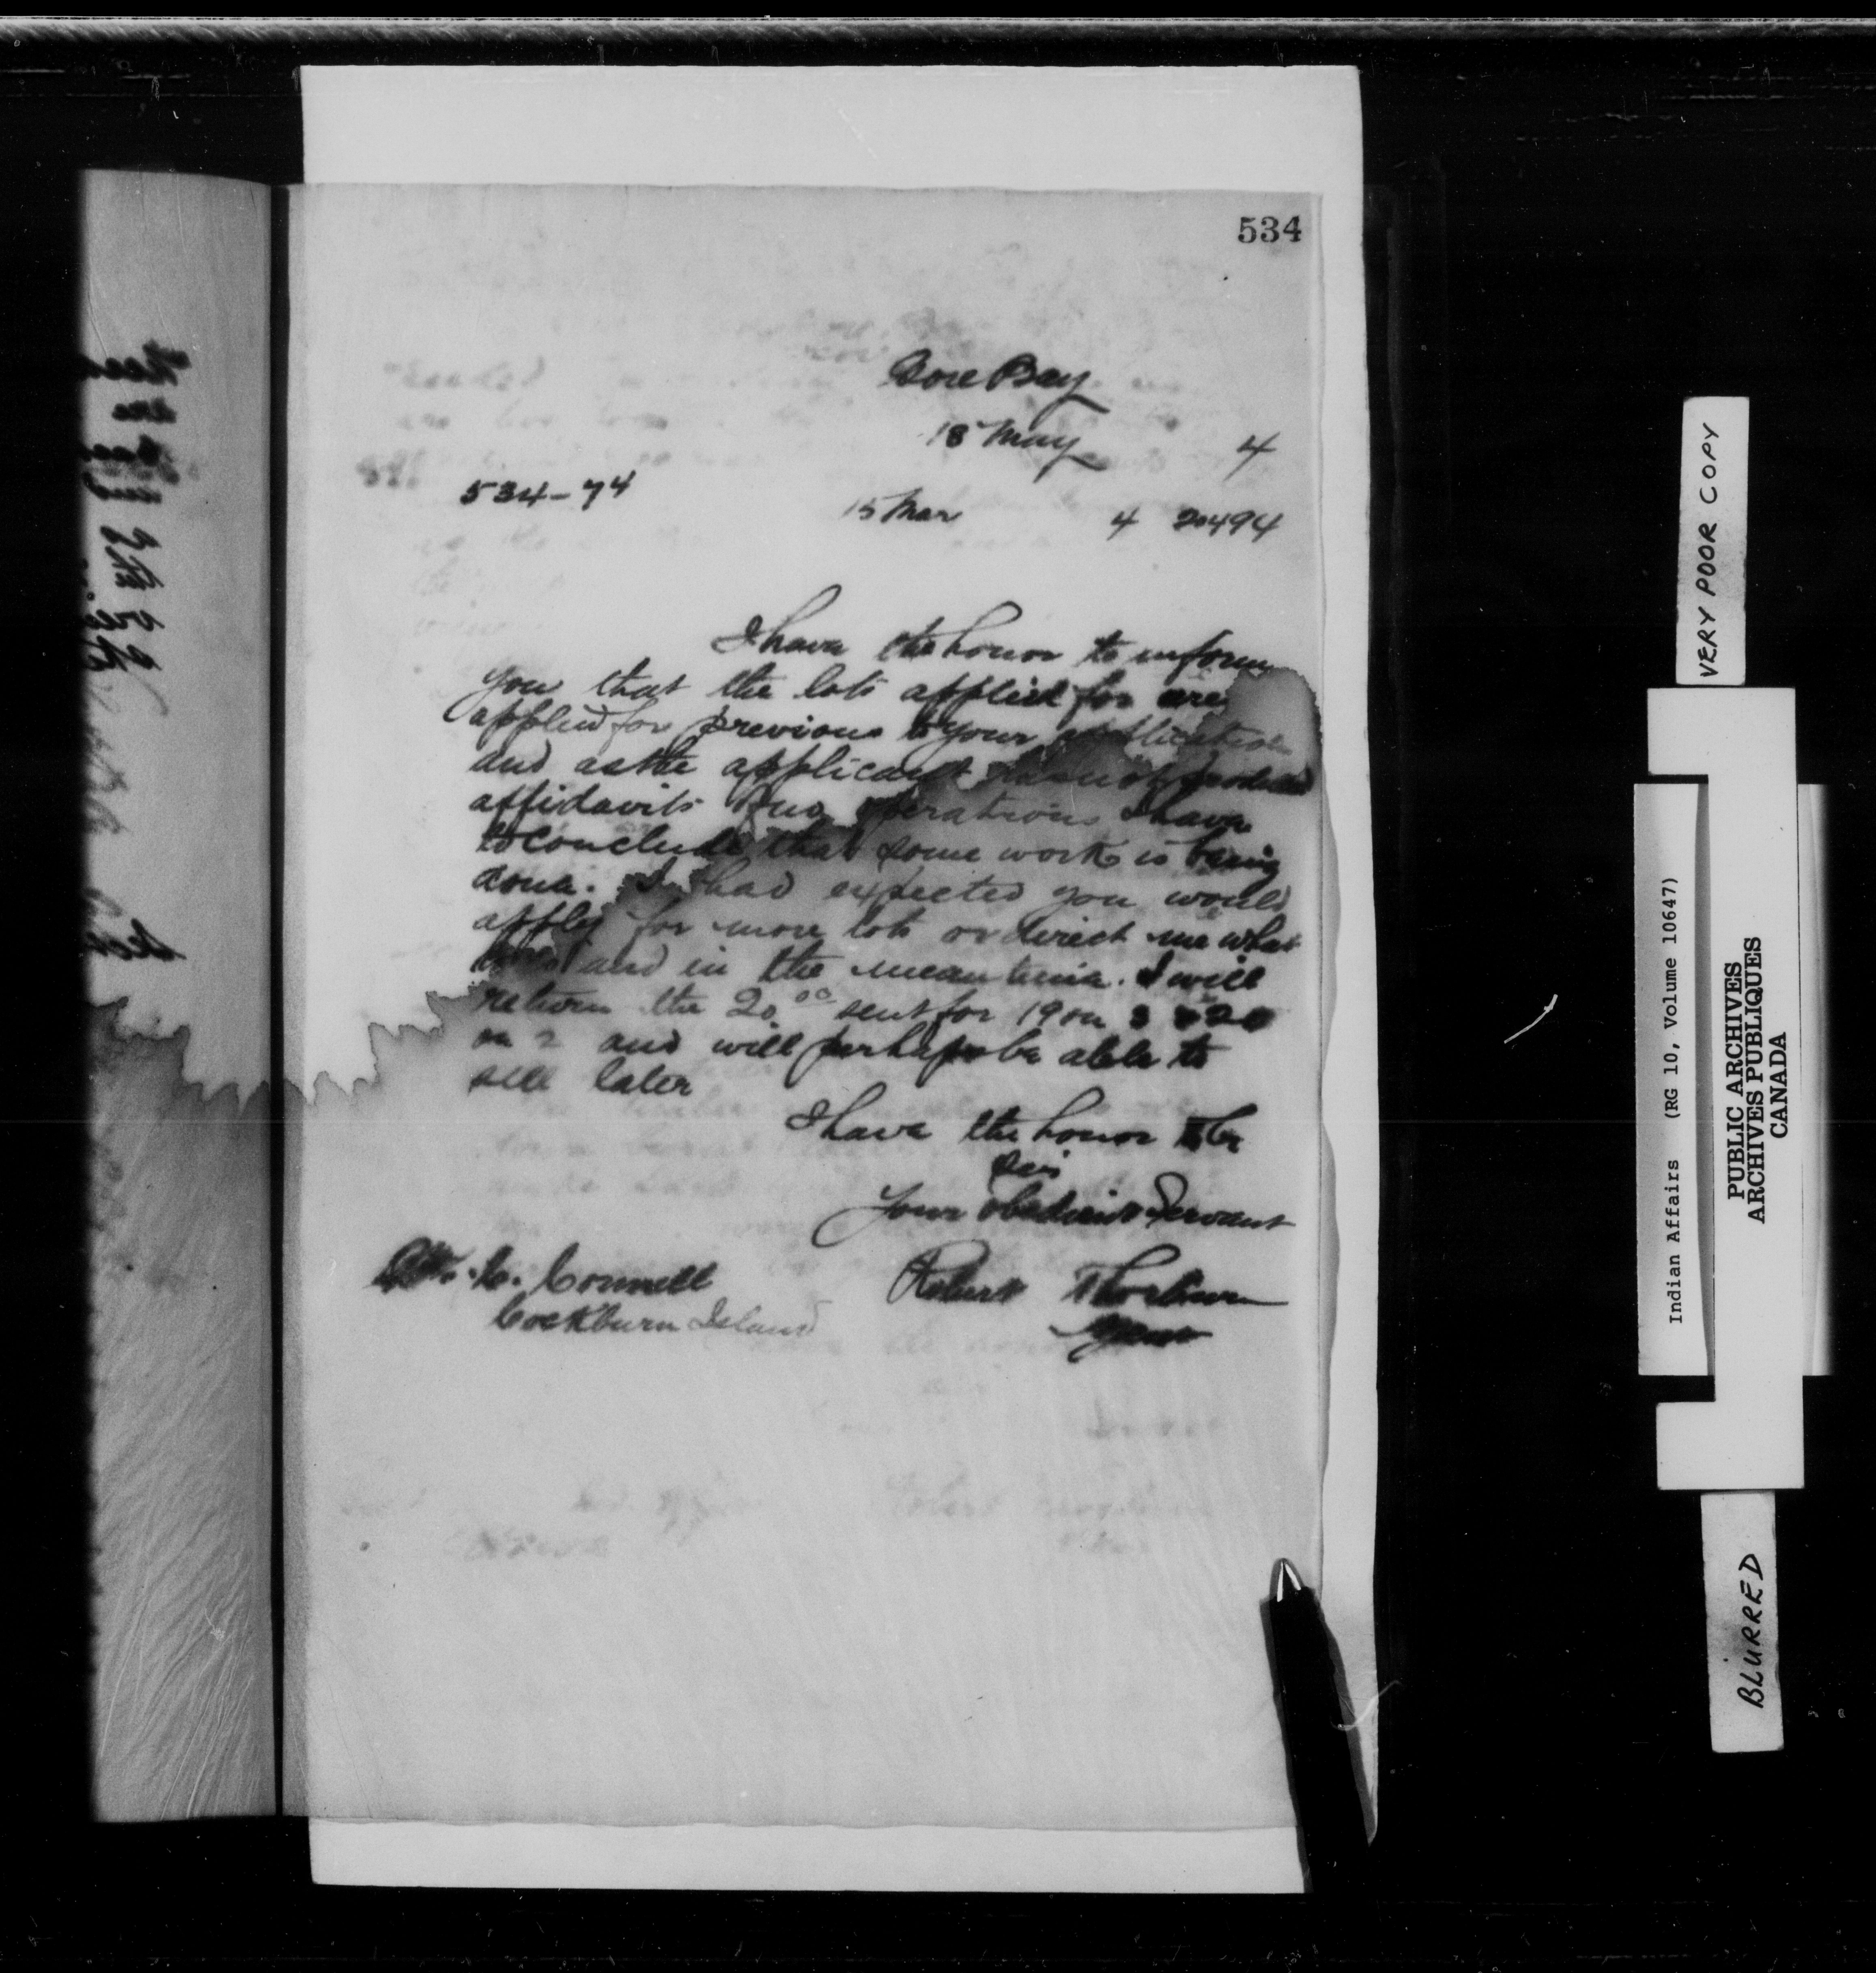 534
Gore Bay
18 May 4
534-74
15 Mar 4 20494
I have the honor to inform
you that the lots applied for are
applied for previous to your application
and as the applicant has not produced
affidavits of no operations I have
to conclude that some work is being
done. I had expected you would
apply for more lots or direct me what
and in the meantime. I will
return the 20 00 sent for 19 on 3 & 20
on 2 and will perhaps be able to
sell later
I have the honor to be
Sir
Your obedient Servant
C. Connell
Robert Thorburn
Cockburn Island
Agent
VERY POOR COPY
Indian Affairs (RG 10, Volume 10647)
PUBLIC ARCHIVES
ARCHIVES PUBLIQUES
CANADA
BLURRED